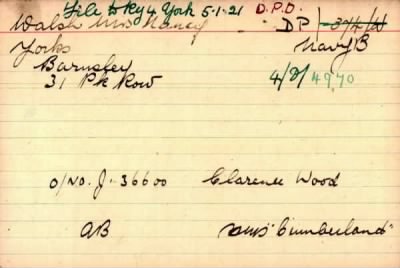 File to Reg 4 York 5-1-21 D.P.O.
Walsh Mrs Nancy DP
Yorks Navy B
Barnsley 4/D/4970
31 Pk Row
O/No. J. 36600 Clarence Wood
AB HMS "Cumberland"